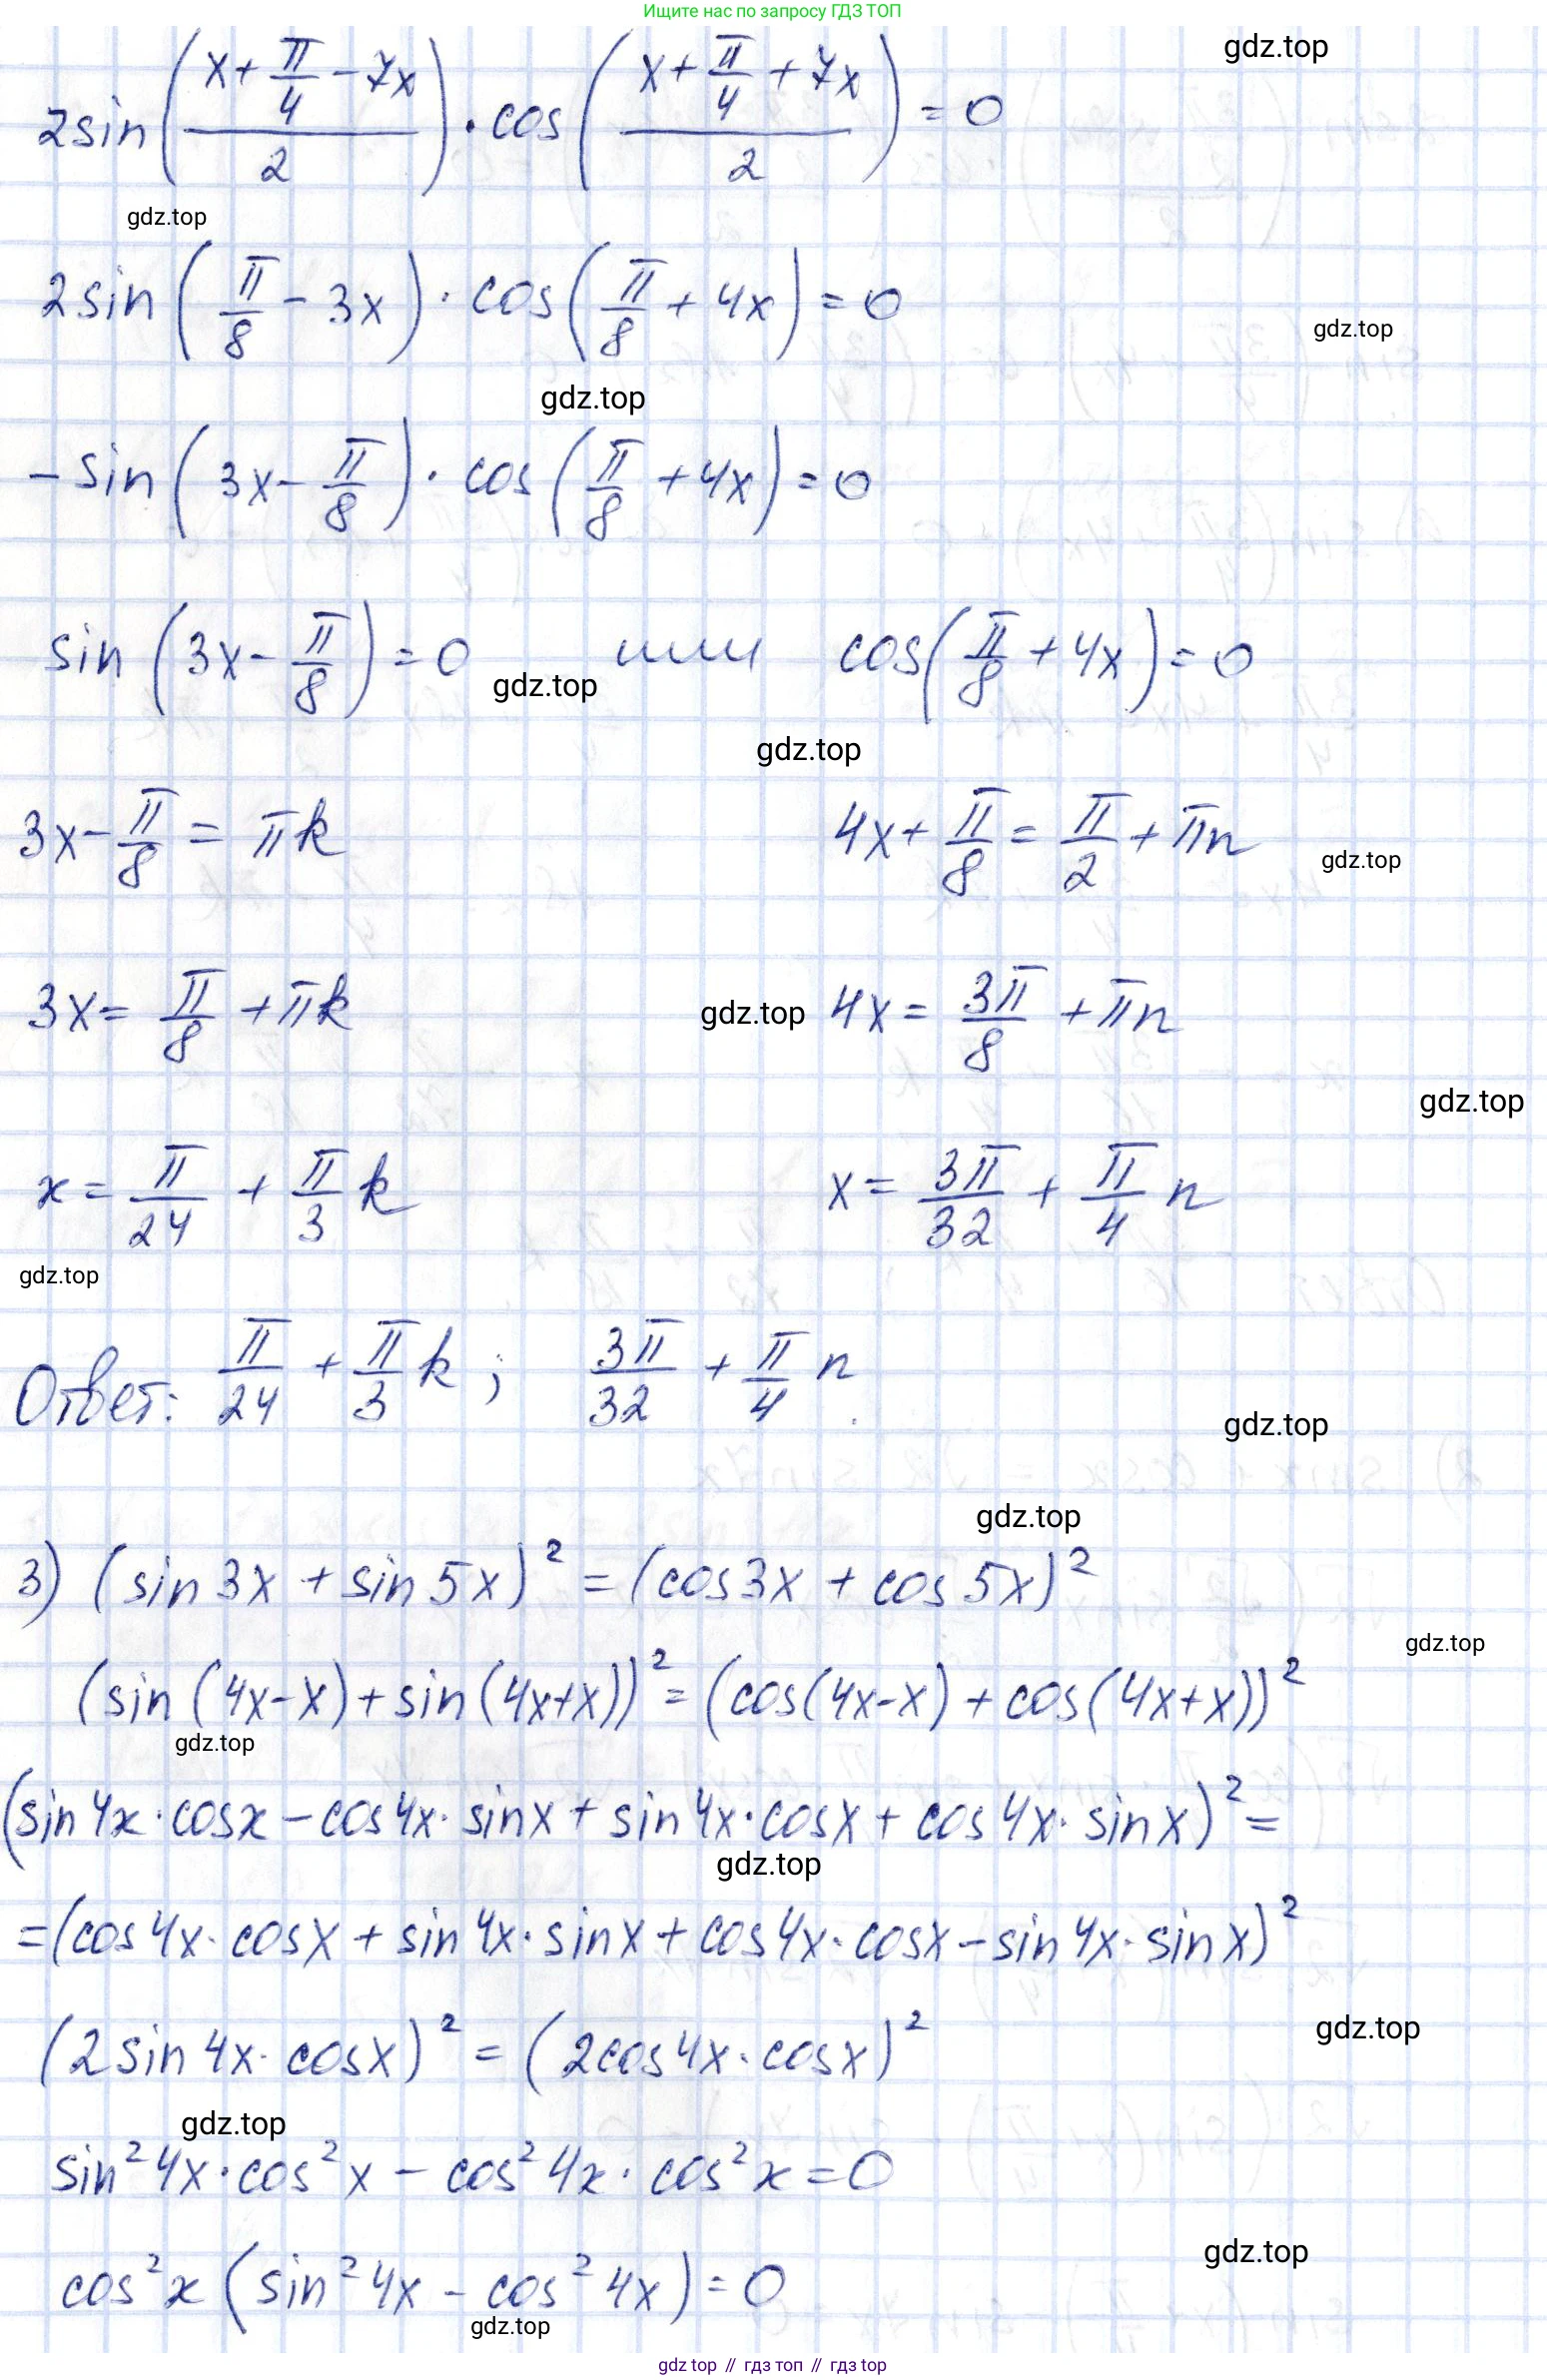 Ищите нас по запросу ГДЗ ТОП
gdz.top
2sin((x+π/4-7x)/2)·cos((x+π/4+7x)/2)=0
gdz.top
2sin(π/8-3x)·cos(π/8+4x)=0
gdz.top
gdz.top
-sin(3x-π/8)·cos(π/8+4x)=0
sin(3x-π/8)=0 или cos(π/8+4x)=0
gdz.top
gdz.top
3x-π/8=πk 4x+π/8=π/2+πn
gdz.top
3x=π/8+πk gdz.top 4x=3π/8+πn
gdz.top
x=π/24+π/3 k x=3π/32+π/4 n
gdz.top
Ответ: π/24+π/3 k; 3π/32+π/4 n.
gdz.top
gdz.top
3) (sin3x+sin5x)²=(cos3x+cos5x)²
gdz.top
(sin(4x-x)+sin(4x+x))²=(cos(4x-x)+cos(4x+x))²
gdz.top
(sin4x·cosx-cos4x·sinx+sin4x·cosx+cos4x·sinx)²=
gdz.top
=(cos4x·cosx+sin4x·sinx+cos4x·cosx-sin4x·sinx)²
gdz.top
(2sin4x·cosx)²=(2cos4x·cosx)²
gdz.top
sin²4x·cos²x-cos²4x·cos²x=0
gdz.top
cos²x(sin²4x-cos²4x)=0
gdz.top
gdz top // гдз топ // гдз top